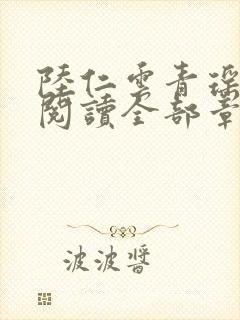 陸仁雲青瑤
閱讀全部章
波波醬